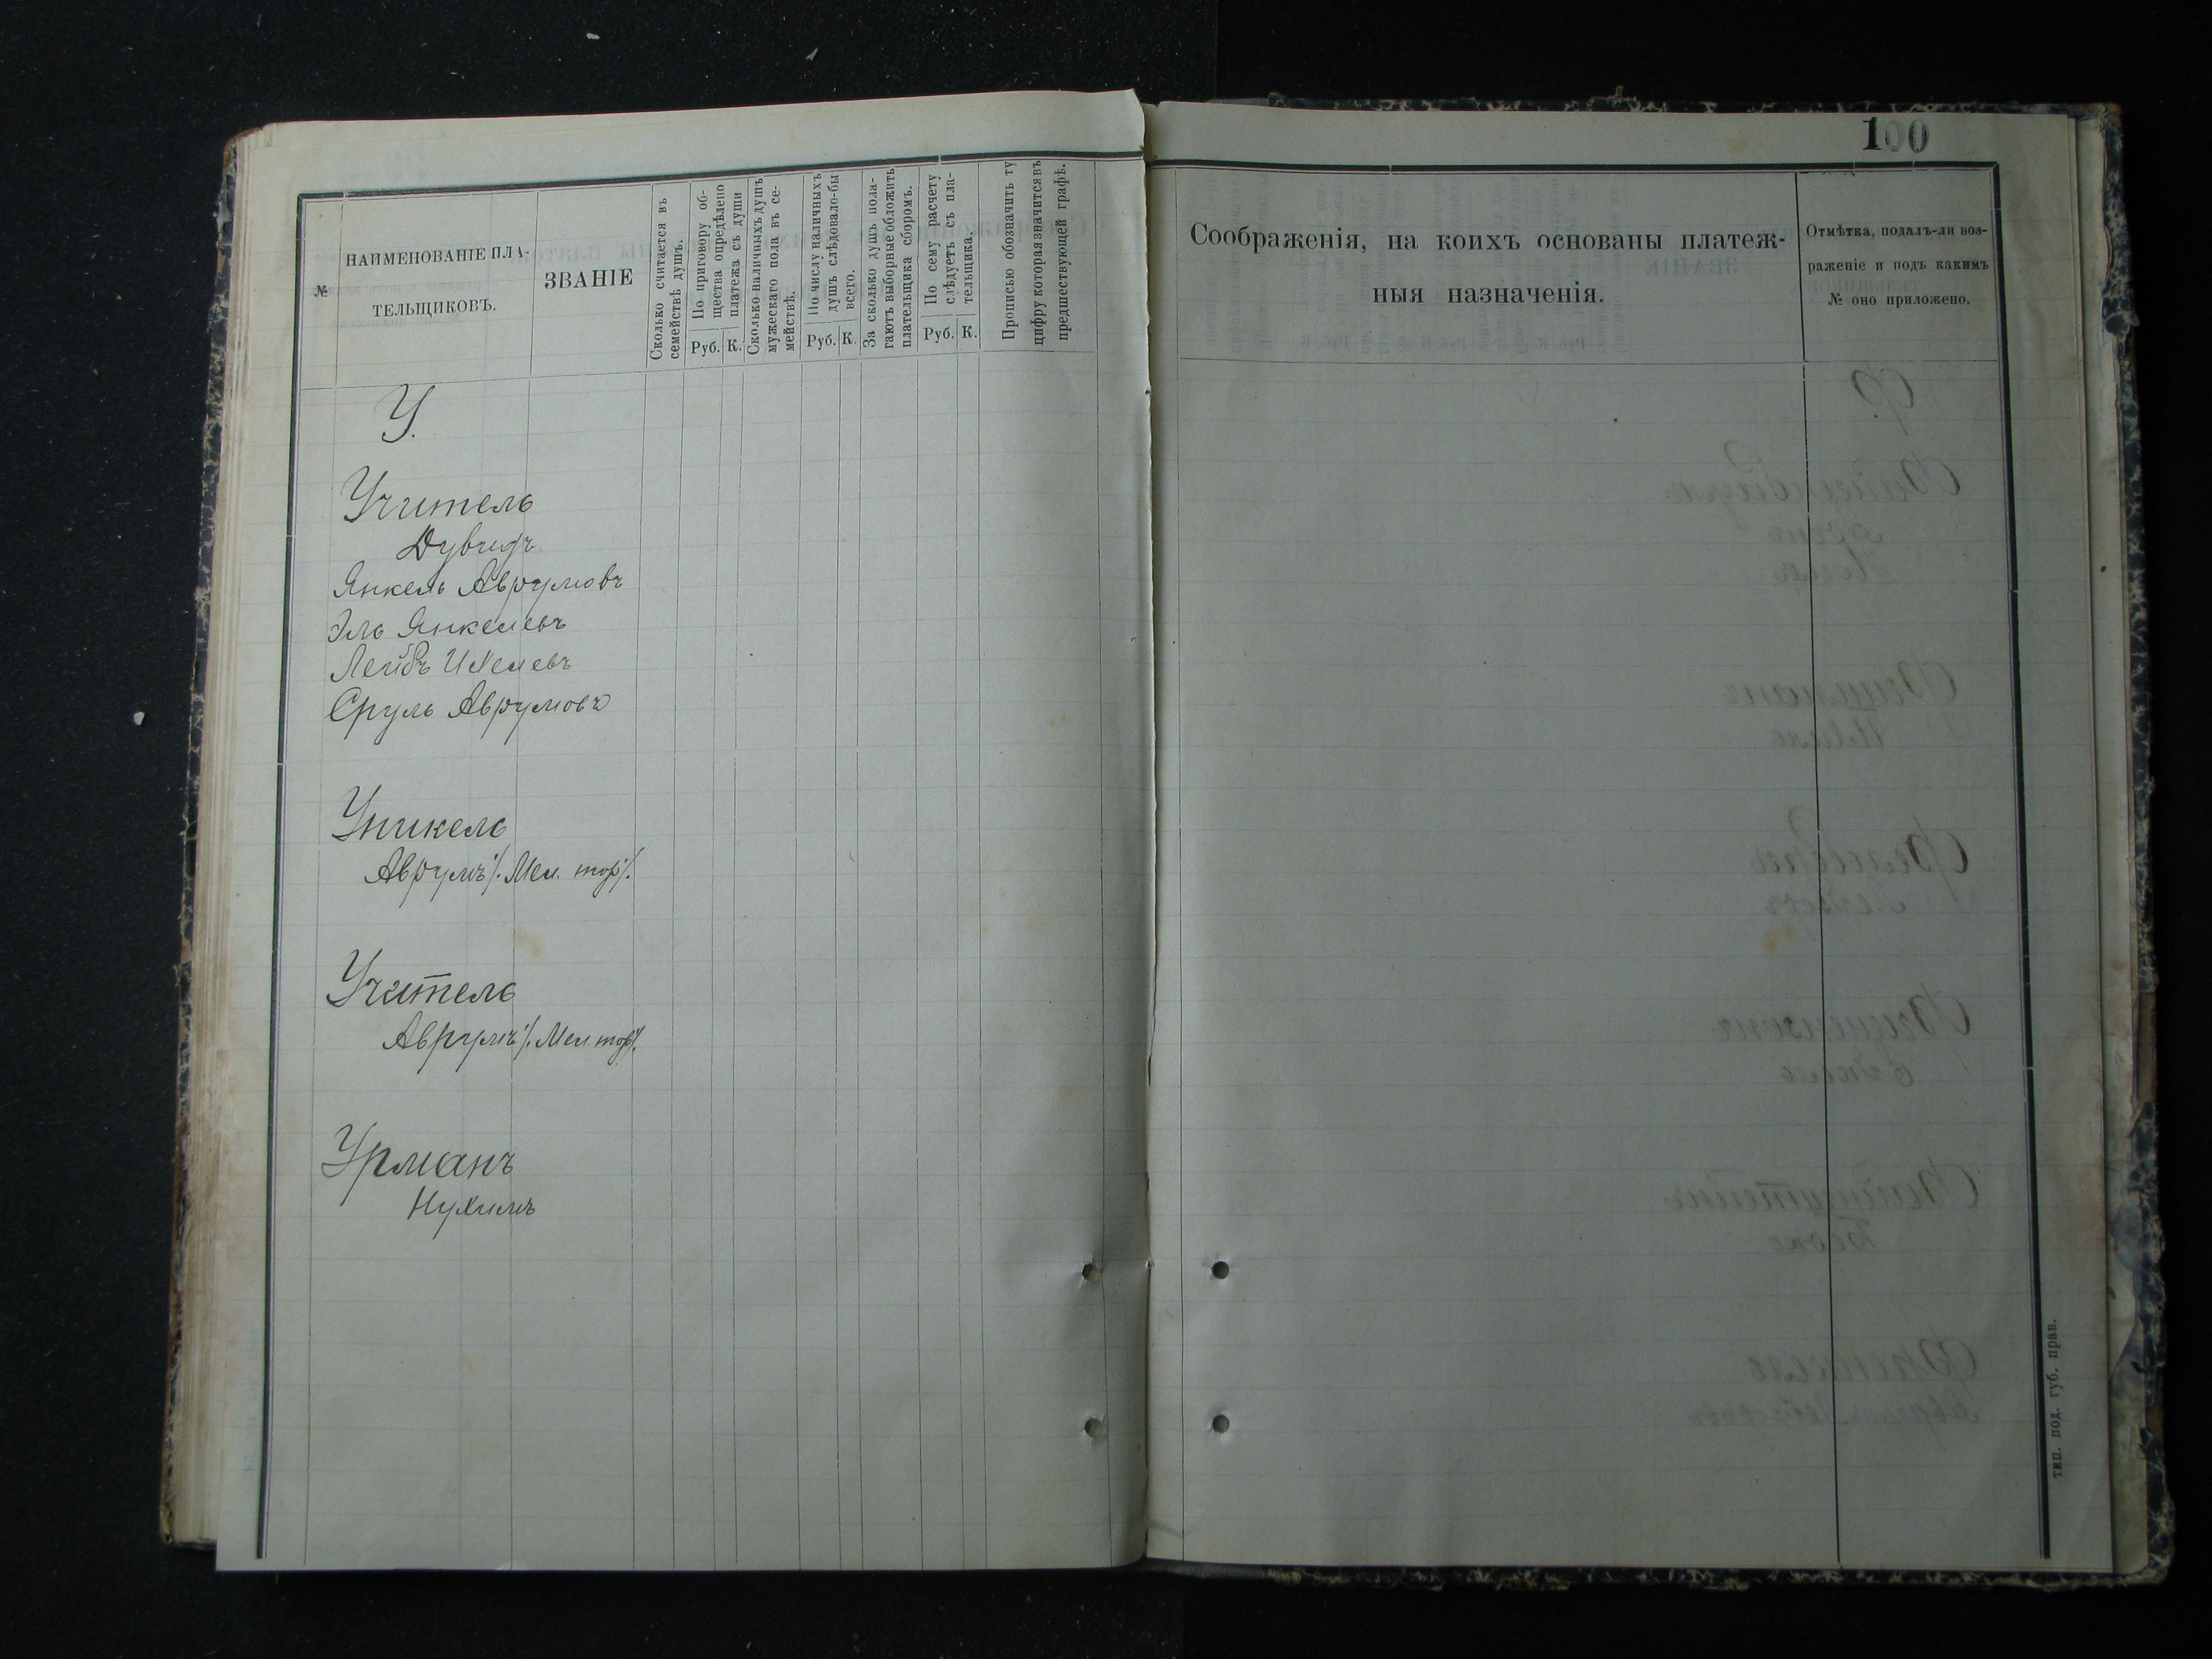 100
№
НАИМЕНОВАНІЕ ПЛА-
ТЕЛЬЩИКОВЪ.
ЗВАНІЕ
Сколько считается въ
семействѣ душъ.
По приговору об-
щества опредѣлено
платежа съ души
Руб. К.
Сколько наличныхъ душъ
мужескаго пола въ се-
мействѣ.
По числу наличныхъ
душъ слѣдовало-бы
всего.
Руб. К.
За сколько душъ пола-
гаютъ выборные обложить
плательщика сборомъ.
По сему расчету
слѣдуетъ съ пла-
тельщика.
Руб. К.
Прописью обозначить ту
цифру которая значится въ
предшествующей графѣ.
Соображенія, на коихъ основаны платеж-
ныя назначенія.
Отмѣтка, подалъ-ли воз-
раженіе и подъ какимъ
№ оно приложено.
У.
Учитель
Дувидъ
Янкель Аврумовъ
Эль Янкелевъ
Лейбъ
Сруль Аврумовъ
Уникель
Аврумъ /. Мел. тор/.
Учитель
Аврумъ /. Мел. тор/.
Урманъ
Нухимъ
тип. под. губ. прав.